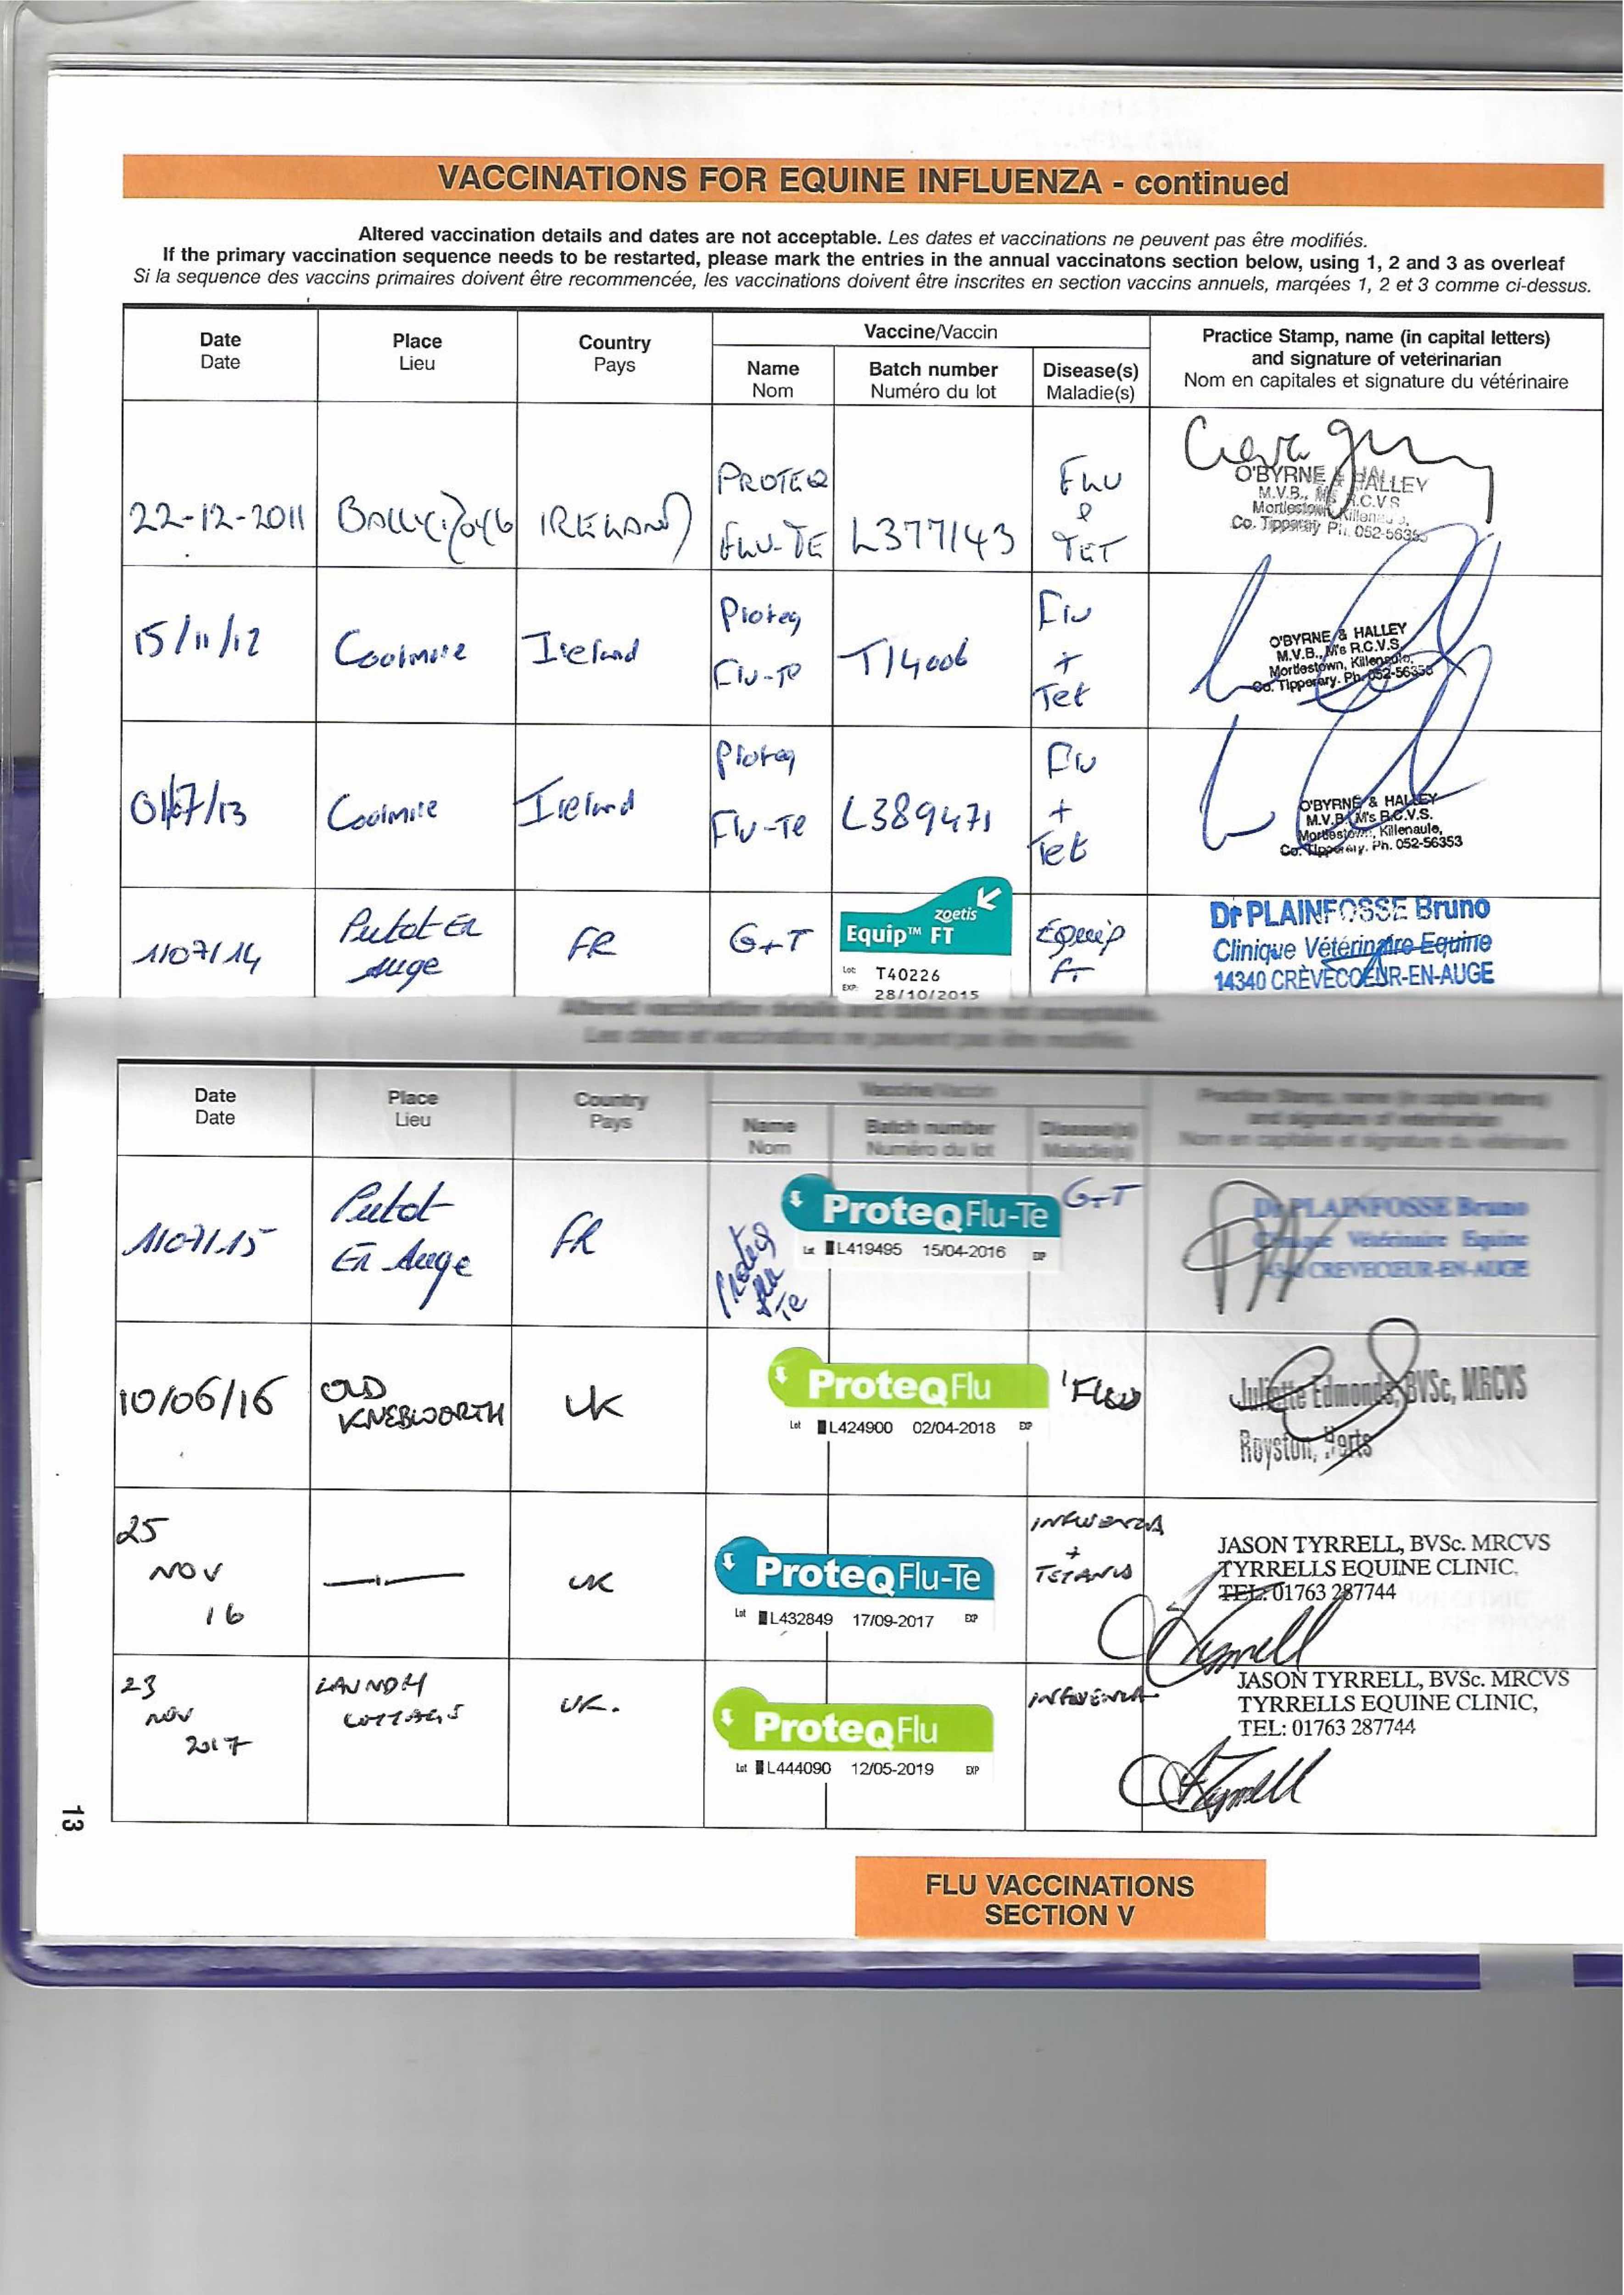 VACCINATIONS FOR EQUINE INFLUENZA - continued
Altered vaccination details and dates are not acceptable. Les dates et vaccinations ne peuvent pas être modifiés.
If the primary vaccination sequence needs to be restarted, please mark the entries in the annual vaccinatons section below, using 1, 2 and 3 as overleaf
Si la sequence des vaccins primaires doivent être recommencée, les vaccinations doivent être inscrites en section vaccins annuels, marqées 1, 2 et 3 comme ci-dessus.
Date
Date
Place
Lieu
Country
Pays
Vaccine/Vaccin
Name
Nom
Batch number
Numéro du lot
Disease(s)
Maladie(s)
Practice Stamp, name (in capital letters)
and signature of veterinarian
Nom en capitales et signature du vétérinaire
22-12-2011
IRELAND
PROTEQ
FLU-TE
L377143
FLU
&
TET
O'BYRNE & HALLEY
M.V.B., M's R.C.V.S
Mortlestown, Killenaule,
Co. Tipperary Ph. 052-56353
15/11/12
Coolmore
Ireland
Proteq
Flu-Te
T14006
Flu
+
Tet
O'BYRNE & HALLEY
M.V.B., M's R.C.V.S.
Mortlestown, Killenaule,
Co. Tipperary. Ph. 052-56353
01/07/13
Coolmore
Ireland
Proteq
Flu-Te
L389471
Flu
+
Tet
O'BYRNE & HALLEY
M.V.B., M's R.C.V.S.
Mortlestown, Killenaule,
Co. Tipperary. Ph. 052-56353
1107114
Putot En
Auge
FR
G+T
zoetis
Equip™ FT
Lot: T40226
EXP: 28/10/2015
Equip
FT
Dr PLAINFOSSE Bruno
Clinique Vétérinaire Equine
14340 CRÈVECOEUR-EN-AUGE
Altered vaccination details and dates are not acceptable.
Les dates et vaccinations ne peuvent pas être modifiés.
Date
Date
Place
Lieu
Country
Pays
Vaccine/Vaccin
Name
Nom
Batch number
Numéro du lot
Disease(s)
Maladie(s)
Practice Stamp, name (in capital letters)
and signature of veterinarian
Nom en capitales et signature du vétérinaire
1107115
Putot
En Auge
FR
Proteq
Flu
Te
ProteqFlu-Te
Lot L419495 15/04-2016 EXP
G+T
Dr PLAINFOSSE Bruno
Clinique Vétérinaire Equine
14340 CREVECOEUR-EN-AUGE
10/06/16
OLD
KNEBWORTH
UK
ProteqFlu
Lot L424900 02/04-2018 EXP
'FLU
Juliette Edmonds, BVSc, MRCVS
Royston, Herts
25
NOV
16
UK
ProteqFlu-Te
Lot L432849 17/09-2017 EXP
INFLUENZA
+
TETANUS
JASON TYRRELL, BVSc. MRCVS
TYRRELLS EQUINE CLINIC,
TEL: 01763 287744
23
NOV
2017
COTTAGES
UK.
ProteqFlu
Lot L444090 12/05-2019 EXP
INFLUENZA
JASON TYRRELL, BVSc. MRCVS
TYRRELLS EQUINE CLINIC,
TEL: 01763 287744
13
FLU VACCINATIONS
SECTION V